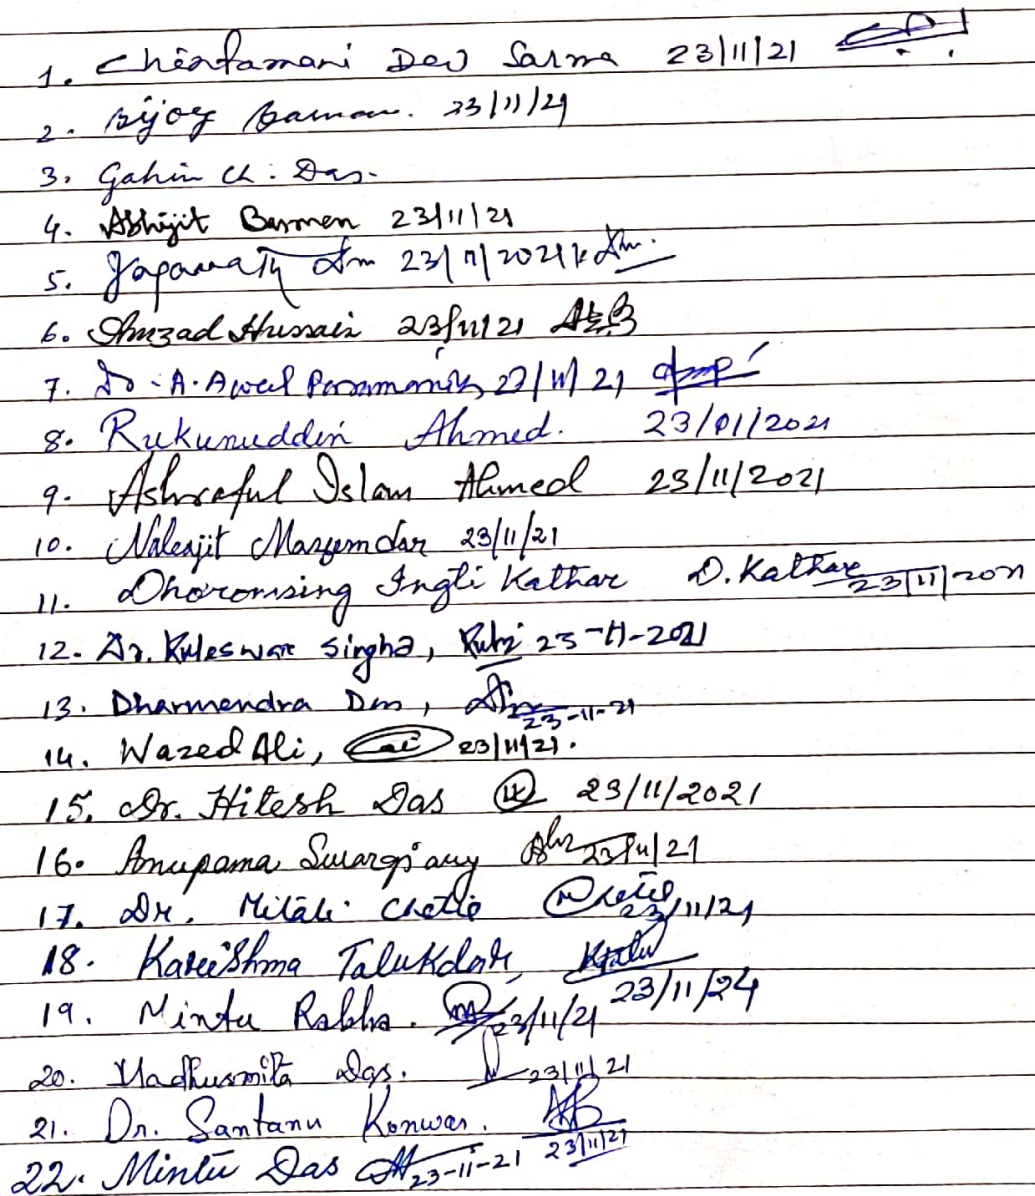 1. Chintamani Dev Sarma 23/11/21
2. Bijoy Barman. 23/11/21
3. Gahin Ch. Das.
4. Abhijit Barmen 23/11/21
5. 23/11/2021
6. Amzad Hussain 23/11/21
7. Dr. A. Awal Paramanik, 23/11/21
8. Rukunuddin Ahmed. 23/01/2021
9. Ashraful Islam Ahmed 23/11/2021
10. Mazumdar 23/11/21
11. Dhoromsing Ingti Kathar D. Kathar 23/11/2021
12. Dr. Kuleswar Singha, 23-11-2021
13. Dharmendra Das, 23-11-21
14. Wazed Ali, 23/11/21.
15. Dr. Hitesh Das 23/11/2021
16. Anupama Swargiary 23/11/21
17. Dr. Mitali Chetia 23/11/21
18. Kareeshma Talukdar,
19. Mintu Rabha. 23/11/21 23/11/24
20. Madhusmita Das. 23/11/21
21. Dr. Santanu Konwar. 23/11/21
22. Mintu Das 23-11-21